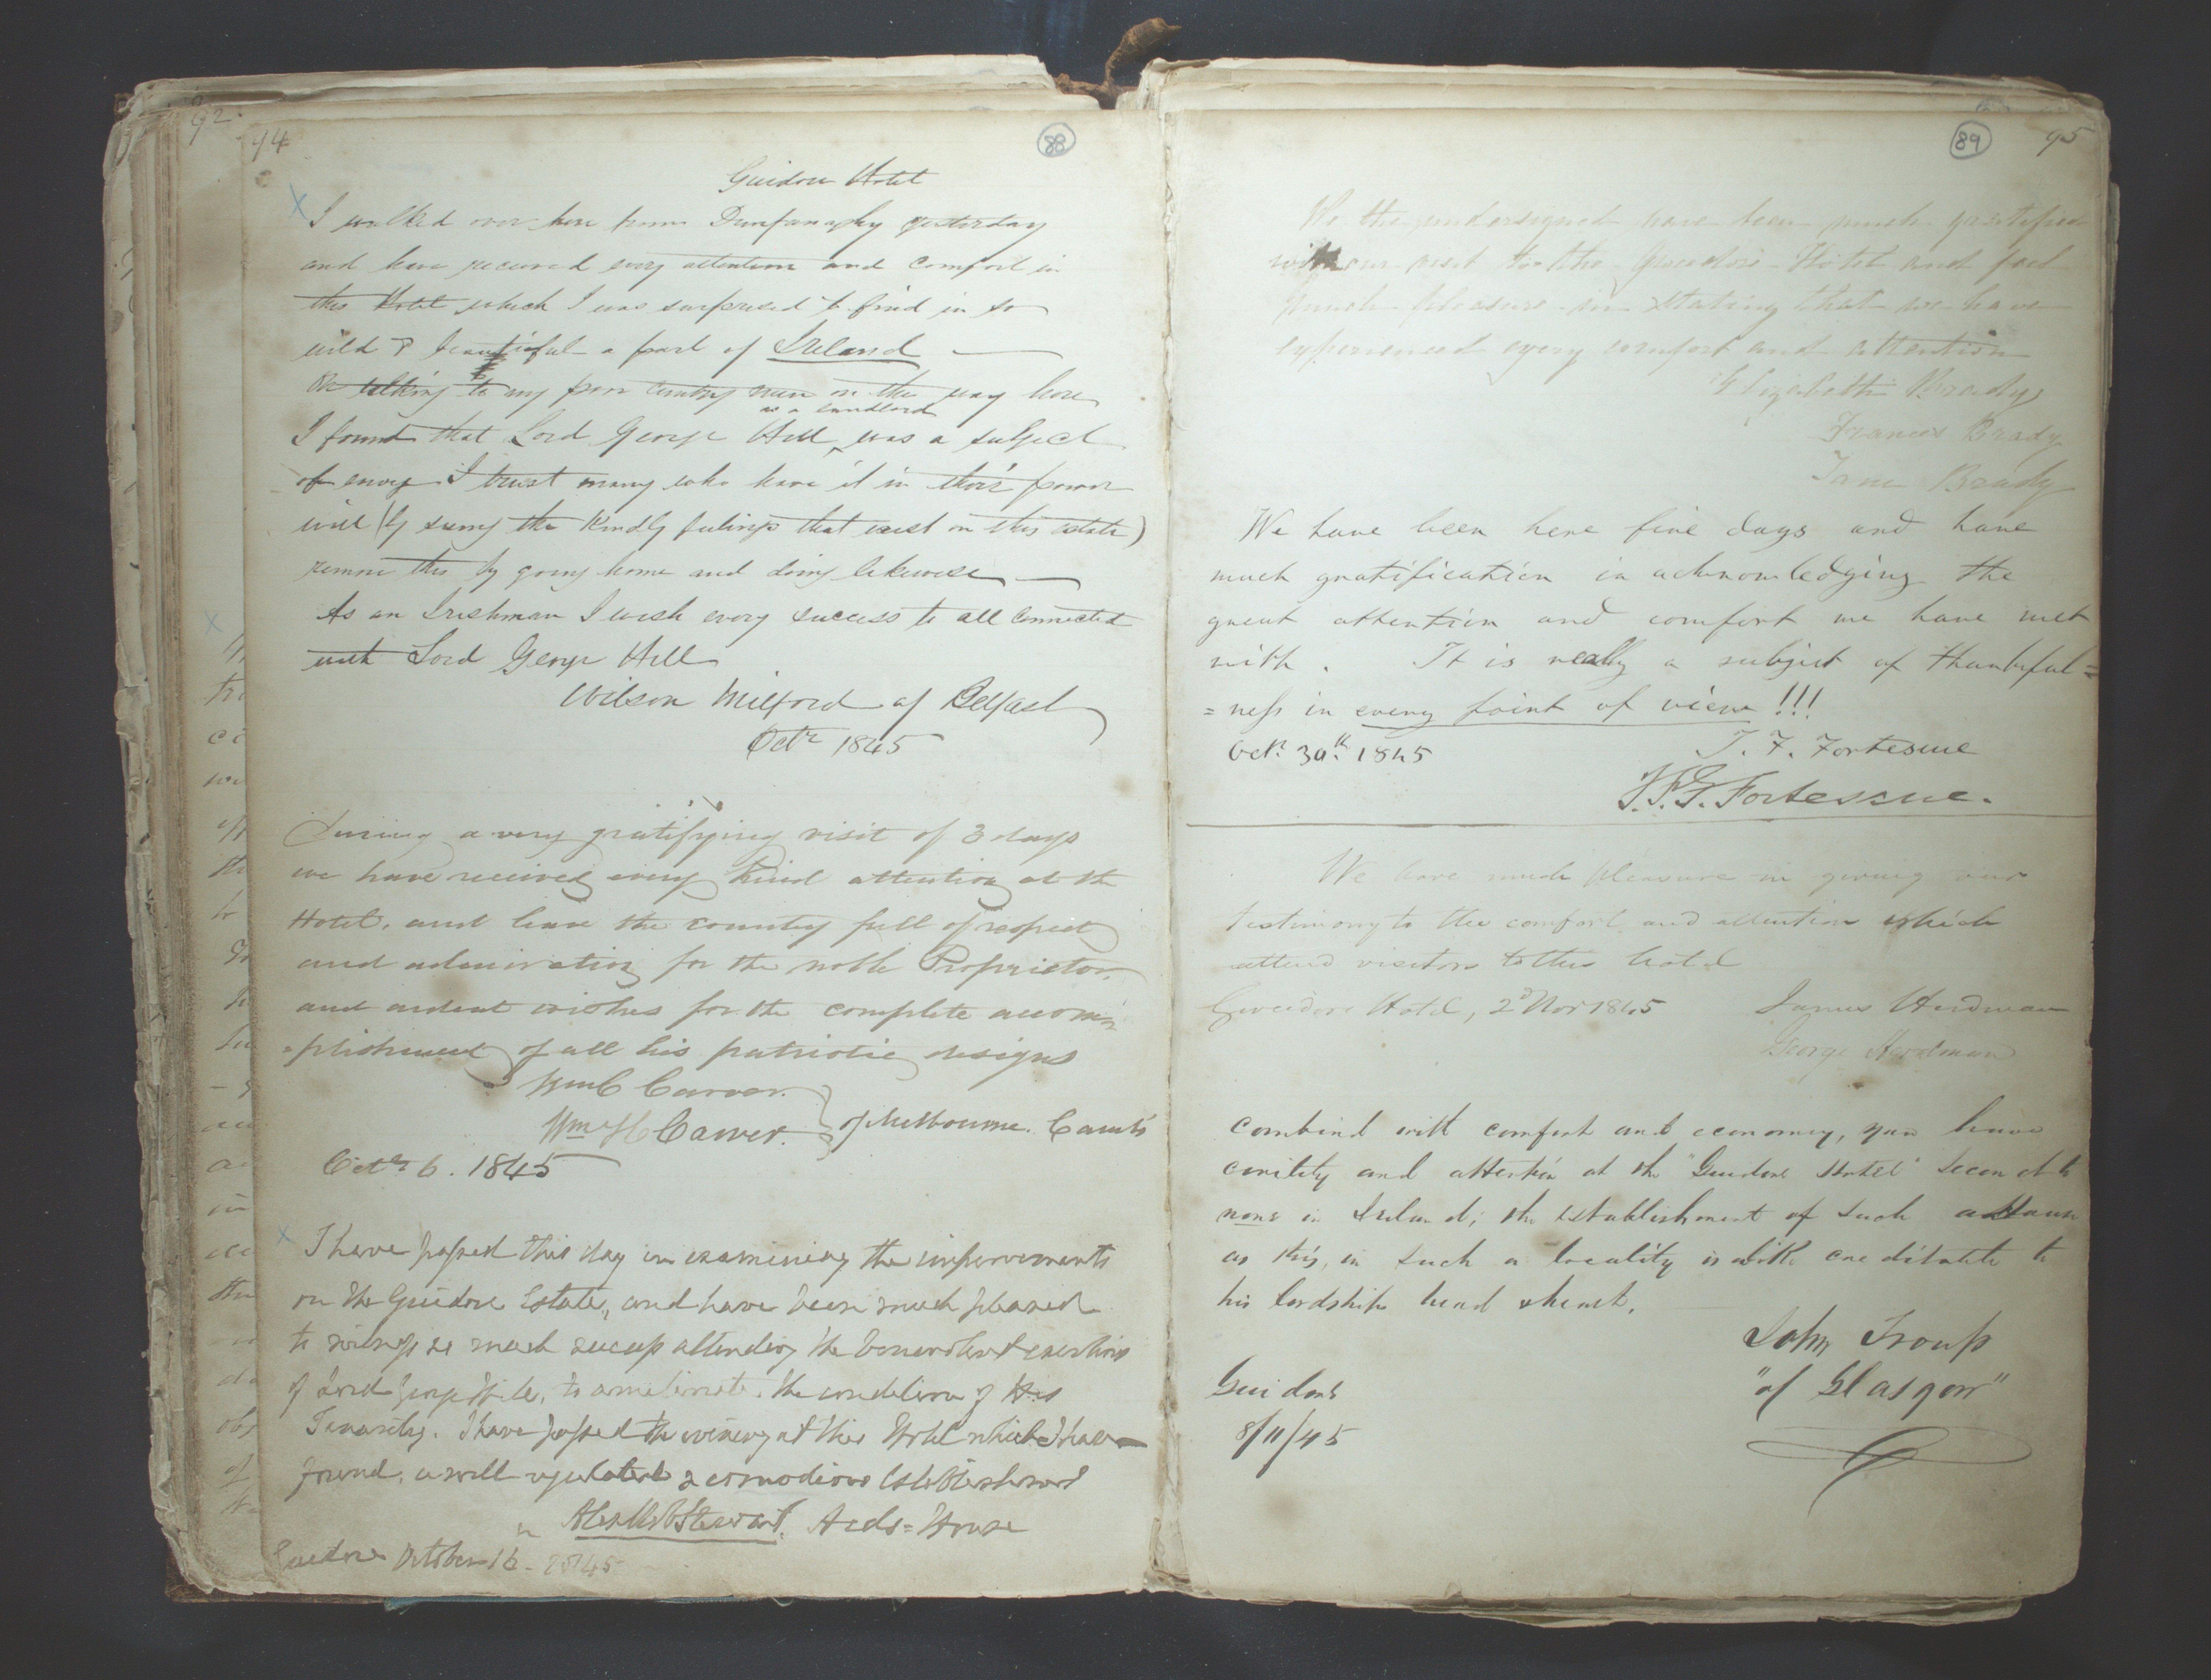 92
94
88
Guidore Hotel
I walked over here from Dunfanaghy yesterday
and have received every attention and comfort in
this Hotel which I was surprised to find in so
wild & beautiful a part of Ireland
On talking to my poor country men on the way here
as a landlord
I found that Lord George Hill was a subject
of envy I trust many who have it in their power
will (by seeing the kindly feelings that exist on this estate)
remove this by going home and doing likewise
As an Irishman I wish every success to all connected
with Lord George Hill
Wilson Milford of Belfast
Octr 1845
During a very gratifying visit of 3 days
we have received every kind attention at the
Hotel, and leave the country full of respect
and admiration for the noble Proprietor,
and ardent wishes for the complete accom=
=plishment of all his patriotic designs
Wm C Carver.
Wm H C Carver. of Melbourne. Cambs
Octr 6. 1845
I have passed this day in examining the improvements
on the Guidore Estate, and have been much pleased
to witness so much success attending the benevolent exertions
of Lord George Hill, to ameliorate the condition of His
Tenantry. I have passed the evening at this Hotel which I have
found, a well regulated & comodious Establishment
Stewart. Ards=House
Guedore October 16 - 1845
89
95
We the undersigned have been much gratified
with our visit to the Gweedore Hotel and feel
much pleasure in stating that we have
experienced every comfort and attention
Elizabeth Brady
Frances Brady
Jane Brady
We have been here five days and have
much gratification in acknowledging the
great attention and comfort we have met
with. It is really a subject of thankful=
=ness in every point of view!!!
Oct. 30th. 1845 T. F. Fortescue
F. Fortescue.
We have much pleasure in giving our
testimony to the comfort and attention which
attend visitors to this hotel
Gweedore Hotel, 2d Nov 1845 James Herdman
George Herdman
Combind with comfort and economy, you have
civility and attention at the "Guidore Hotel" Second to
none in Ireland; the Establishment of Such a Haun
as this, in such a locality is alike creditable to
his lordships head & heart.
John Troup
"of Glasgow"
Guidore
8/11/45